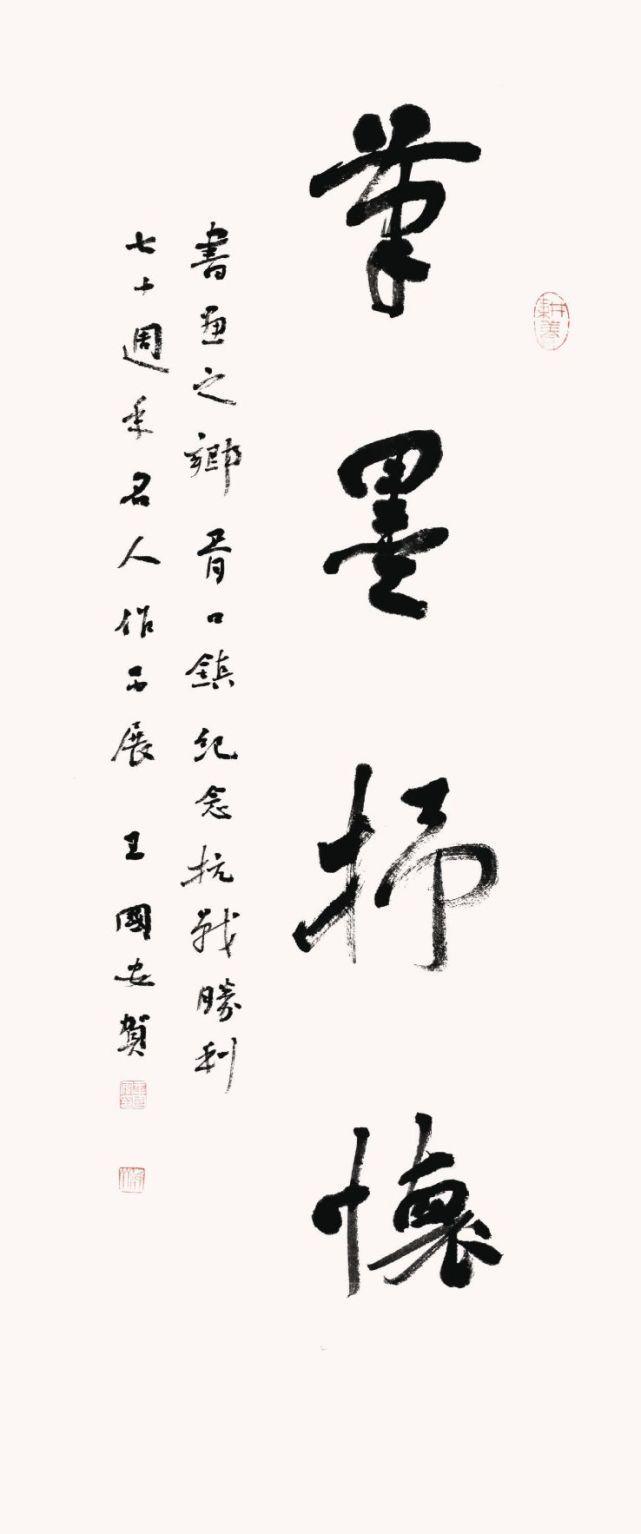 筆墨抒懷
書画之鄉胥口鎮紀念抗戰勝利
七十週年名人作品展 王國安賀